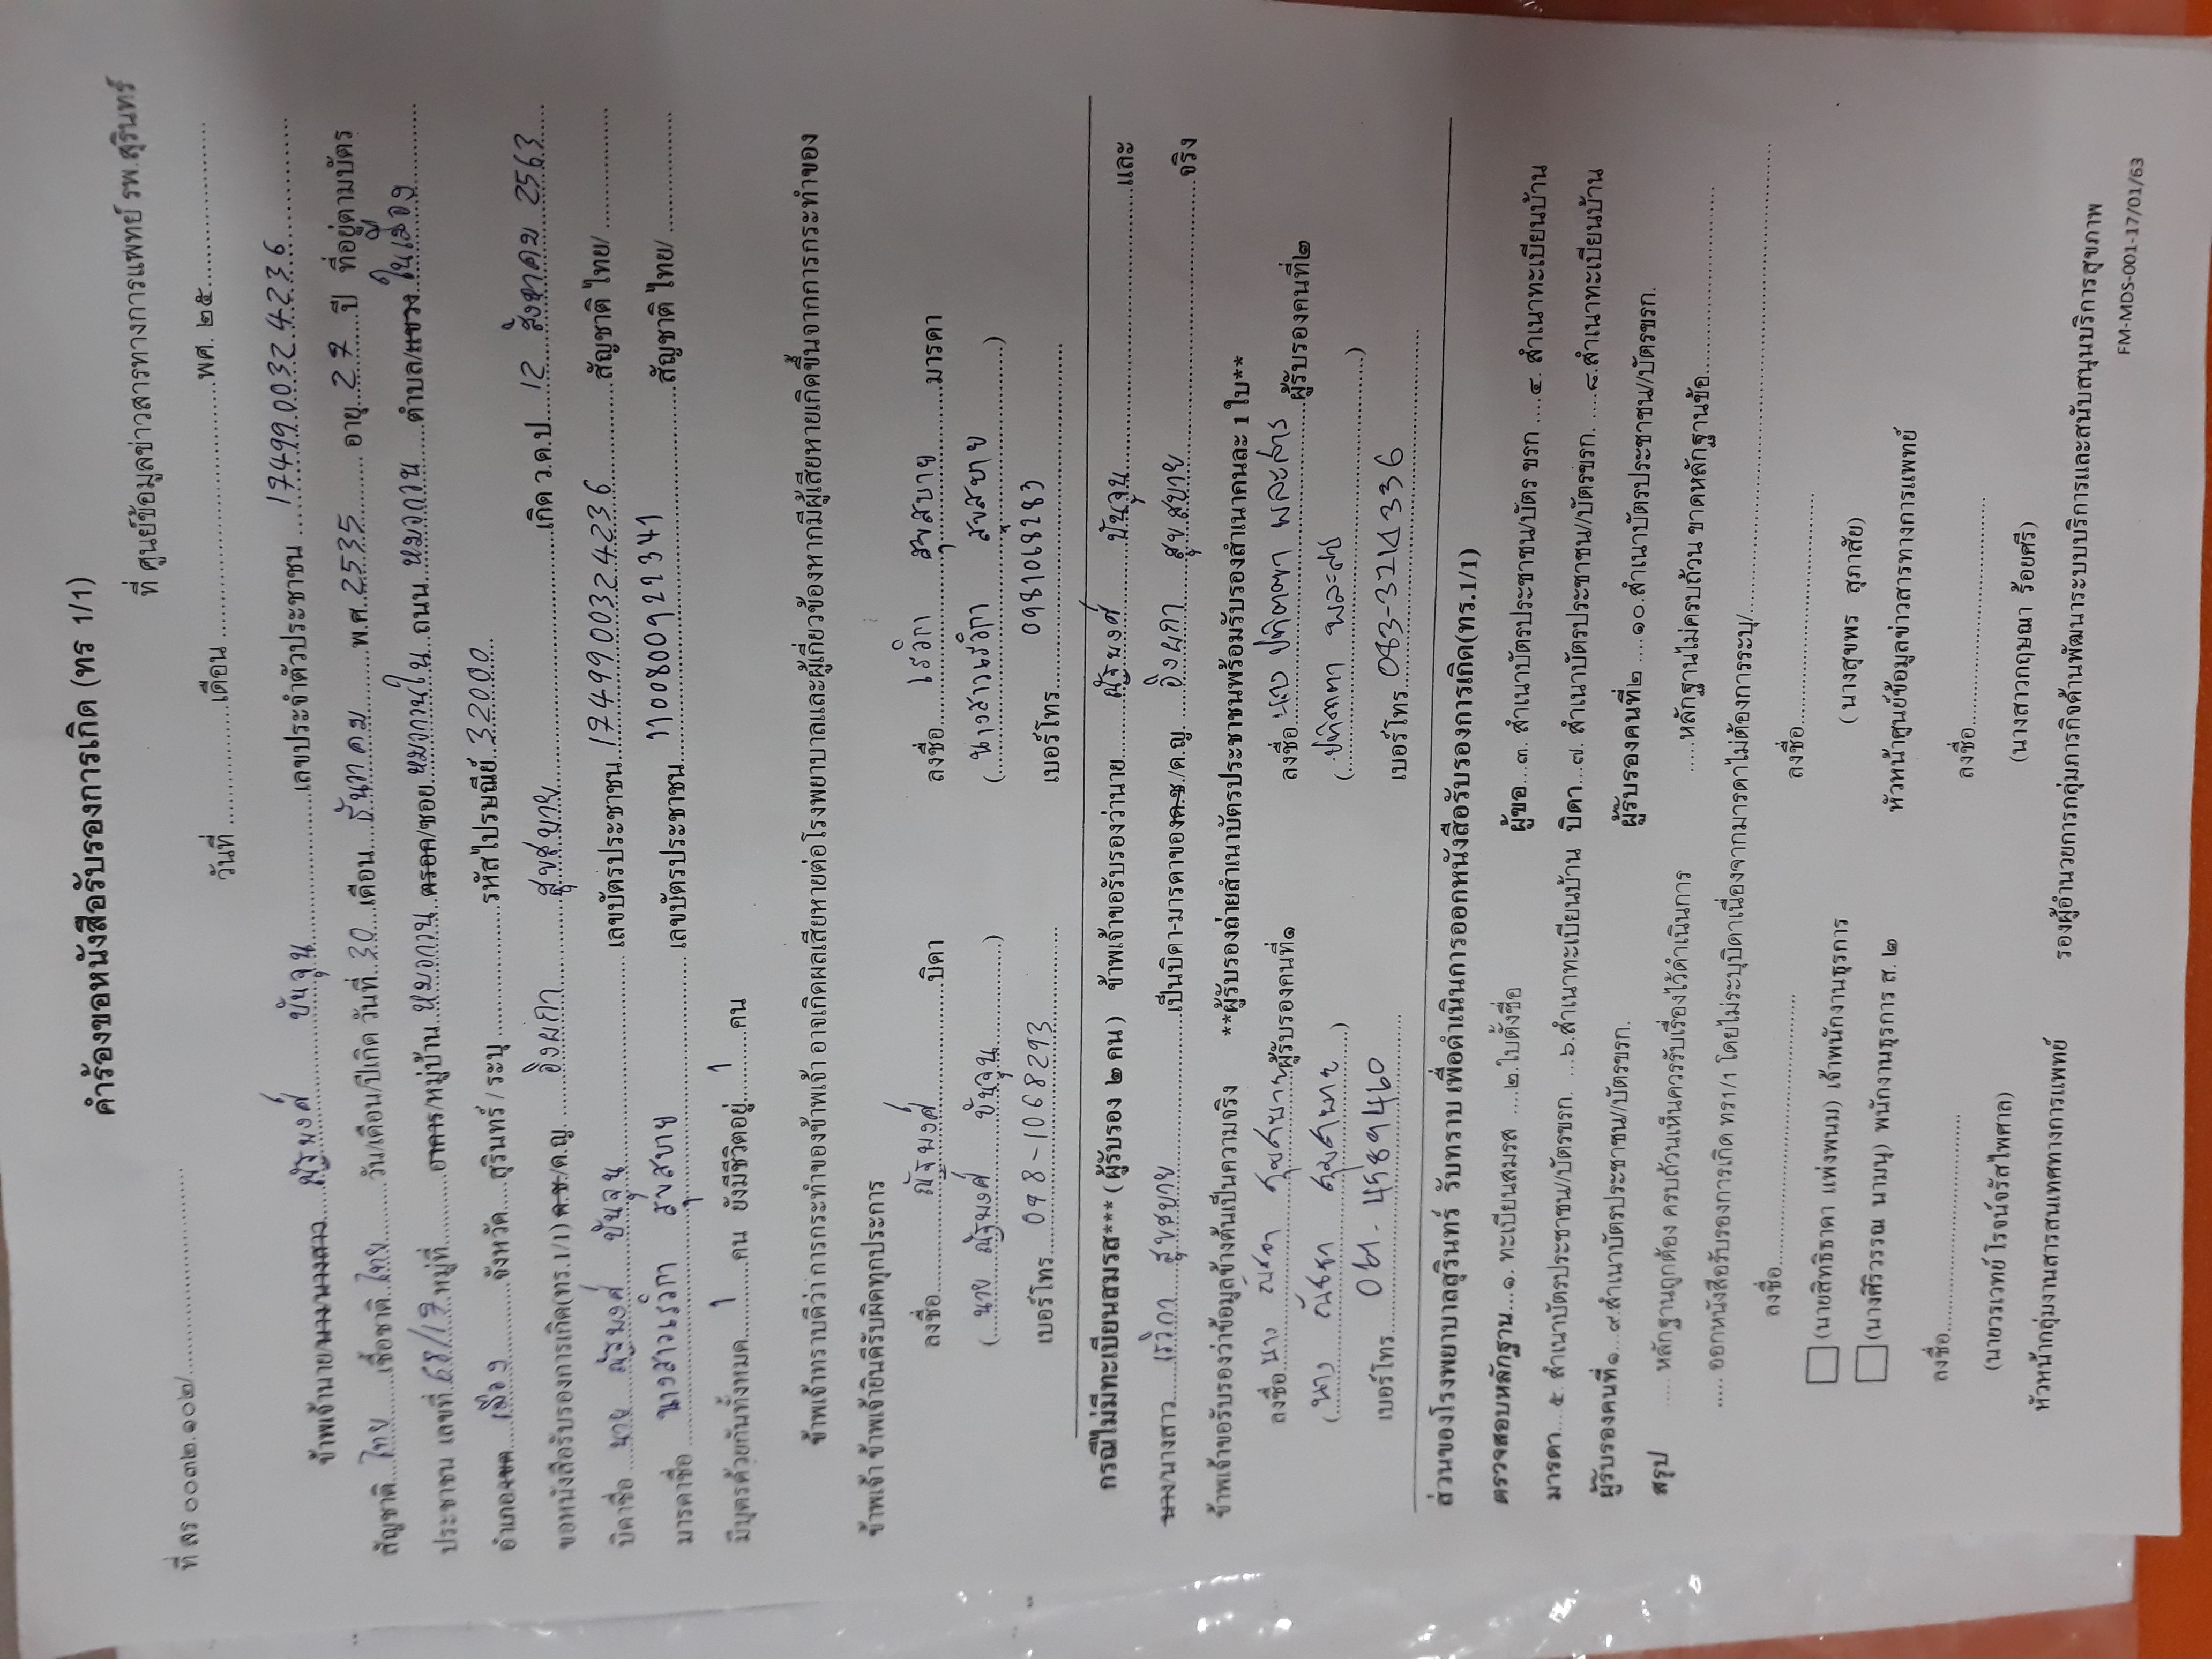 คำร้องขอหนังสือรับรองการเกิด (ทร 1/1)
ที่ ศูนย์ข้อมูลข่าวสารทางการแพทย์ รพ.สุรินทร์
ที่ สร ๐๐๓๒.๑๐๒/..............................
วันที่ .................เดือน ....................................พศ. ๒๕.......................
ข้าพเจ้านาย/นาง/นางสาว ณัฐพงศ์ ปันจุน เลขประจำตัวประชาชน 1749900324236
สัญชาติ ไทย เชื้อชาติ ไทย วัน/เดือน/ปีเกิด วันที่ 30 เดือน ธันวาคม พ.ศ. 2535 อายุ 27 ปี ที่อยู่ตามบัตร
ประชาชน เลขที่ 68/17 หมู่ที่............อาคาร/หมู่บ้าน หมอกวน ตรอก/ซอย หมอกวนใน ถนน หมอกวน ตำบล/แขวง ในเมือง
อำเภอ/เขต เมือง จังหวัด.....สุรินทร์ / ระบุ ...................รหัสไปรษณีย์ 32000
ขอหนังสือรับรองการเกิด(ทร.1/1) ด.ช./ด.ญ. อิงผกา สุขสบาย เกิด ว.ด.ป. 12 สิงหาคม 2563
บิดาชื่อ นาย ณัฐพงศ์ ปันจุน เลขบัตรประชาชน 1749900324236 สัญชาติ ไทย/ ..................
มารดาชื่อ นางสาวเรวิกา สุขสบาย เลขบัตรประชาชน 1100800922341 สัญชาติ ไทย/ ..................
มีบุตรด้วยกันทั้งหมด 1 คน ยังมีชีวิตอยู่ 1 คน
ข้าพเจ้าทราบดีว่า การกระทำของข้าพเจ้า อาจเกิดผลเสียหายต่อโรงพยาบาลและผู้เกี่ยวข้องหากมีผู้เสียหายเกิดขึ้นจากการกระทำของ
ข้าพเจ้า ข้าพเจ้ายินดีรับผิดทุกประการ
ลงชื่อ ณัฐพงศ์ บิดา ลงชื่อ เรวิกา สุขสบาย มารดา
( นาย ณัฐพงศ์ ปันจุน ) ( นางสาวเรวิกา สุขสบาย )
เบอร์โทร 098-1068293 เบอร์โทร 0981068283
กรณีไม่มีทะเบียนสมรส*** ( ผู้รับรอง ๒ คน ) ข้าพเจ้าขอรับรองว่านาย ณัฐพงศ์ ปันจุน และ
นาง/นางสาว เรวิกา สุขสบาย เป็นบิดา-มารดาของด.ช./ด.ญ. อิงผกา สุขสบาย จริง
ข้าพเจ้าขอรับรองว่าข้อมูลข้างต้นเป็นความจริง **ผู้รับรองถ่ายสำเนาบัตรประชาชนพร้อมรับรองสำเนาคนละ 1 ใบ**
ลงชื่อ นาง ณัชชา สุขสบาย ผู้รับรองคนที่๑ ลงชื่อ นาง ผู้รับรองคนที่๒
( นาง ณัชชา สุขสบาย )
เบอร์โทร 4589460 เบอร์โทร 083-3214336
ส่วนของโรงพยาบาลสุรินทร์ รับทราบ เพื่อดำเนินการออกหนังสือรับรองการเกิด(ทร.1/1)
ตรวจสอบหลักฐาน...๑. ทะเบียนสมรส ....๒.ใบตั้งชื่อ ผู้ขอ...๓. สำเนาบัตรประชาชน/บัตร ขรก ....๔. สำเนาทะเบียนบ้าน
มารดา... ๕. สำเนาบัตรประชาชน//บัตรขรก. ...๖.สำเนาทะเบียนบ้าน บิดา...๗. สำเนาบัตรประชาชน//บัตรขรก. ....๘.สำเนาทะเบียนบ้าน
ผู้รับรองคนที่๑...๙.สำเนาบัตรประชาชน//บัตรขรก. ผู้รับรองคนที่๒ ....๑๐.สำเนาบัตรประชาชน//บัตรขรก.
สรุป ..... หลักฐานถูกต้อง ครบถ้วนเห็นควรรับเรื่องไว้ดำเนินการ .....หลักฐานไม่ครบถ้วน ขาดหลักฐานข้อ...........................
..... ออกหนังสือรับรองการเกิด ทร1/1 โดยไม่ระบุบิดาเนื่องจากมารดาไม่ต้องการระบุ/.....................................
ลงชื่อ........................................ ลงชื่อ..................................
(นายสิทธิธาดา แพ่งพนม) เจ้าพนักงานธุรการ ( นางสุขพร สุภาสัย)
(นางศิริวรรณ นามนุ) พนักงานธุรการ ส. ๒ หัวหน้าศูนย์ข้อมูลข่าวสารทางการแพทย์
ลงชื่อ................................ ลงชื่อ..................................
(นายวรเวทย์ โรจน์จรัสไพศาล) (นางสาวกฤษณา ร้อยศรี)
หัวหน้ากลุ่มงานสารสนเทศทางการแพทย์ รองผู้อำนวยการกลุ่มภารกิจด้านพัฒนาระบบบริการและสนับสนุนบริการสุขภาพ
FM-MDS-001-17/01/63